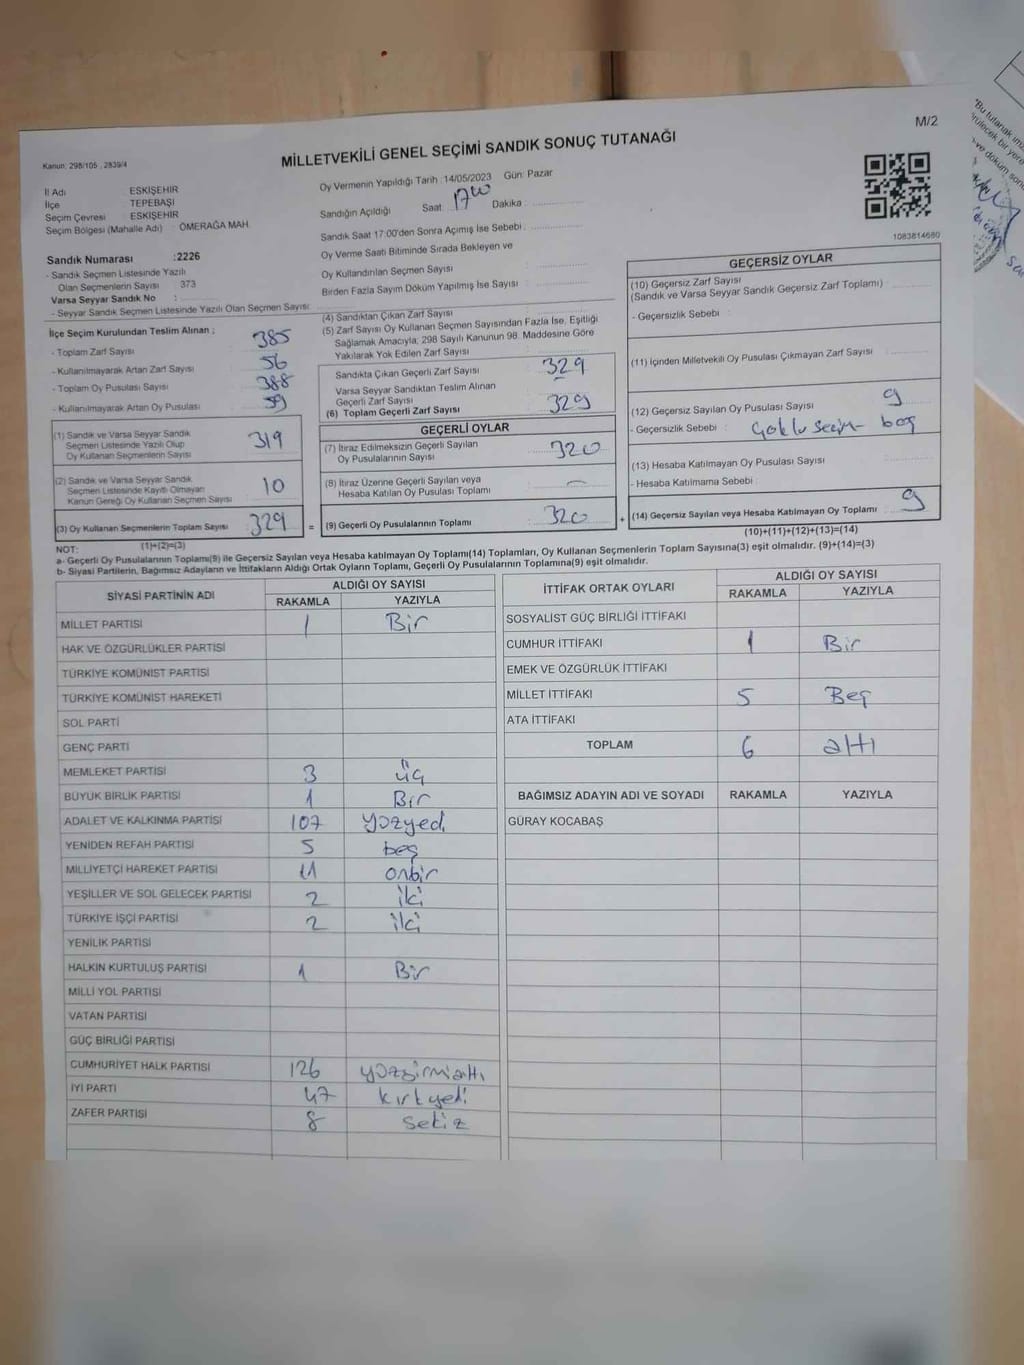 M/2
MİLLETVEKİLİ GENEL SEÇİMİ SANDIK SONUÇ TUTANAĞI
Kanun: 298/105 , 2839/4
İl Adı ESKİŞEHİR
İlçe TEPEBAŞI
Seçim Çevresi : ESKİŞEHİR
Seçim Bölgesi (Mahalle Adı) : ÖMERAĞA MAH.
Sandık Numarası :2226
- Sandık Seçmen Listesinde Yazılı
Olan Seçmenlerin Sayısı : 373
Varsa Seyyar Sandık No :
- Seyyar Seçmen Listesinde Yazılı Olan Seçmen Sayısı:
Oy Vermenin Yapıldığı Tarih :14/05/2023 Gün: Pazar
Sandığın Açıldığı Saat: 17 00 Dakika :
Sandık Saat 17:00'den Sonra Açımış İse Sebebi :
Oy Verme Saati Bitiminde Sırada Bekleyen ve
Oy Kullandırılan Seçmen Sayısı :
Birden Fazla Sayım Döküm Yapılmış İse Sayısı :
1083814680
İlçe Seçim Kurulundan Teslim Alınan ;
- Toplam Zarf Sayısı 385
- Kullanılmayarak Artan Zarf Sayısı 56
- Toplam Oy Pusulası Sayısı 388
- Kullanılmayarak Artan Oy Pusulası 59
(1) Sandık ve Varsa Seyyar Sandık
Seçmen Listesinde Yazılı Olup
Oy Kullanan Seçmenlerin Sayısı 319
(2) Sandık ve Varsa Seyyar Sandık
Seçmen Listesinde Kayıtlı Olmayan
Kanun Gereği Oy Kullanan Seçmen Sayısı 10
(3) Oy Kullanan Seçmenlerin Toplam Sayısı 329 =
(1)+(2)=(3)
(4) Sandıktan Çıkan Zarf Sayısı
(5) Zarf Sayısı Oy Kullanan Seçmen Sayısından Fazla İse, Eşitliği
Sağlamak Amacıyla; 298 Sayılı Kanunun 98. Maddesine Göre
Yakılarak Yok Edilen Zarf Sayısı
Sandıkta Çıkan Geçerli Zarf Sayısı 329
Varsa Seyyar Sandıktan Teslim Alınan
Geçerli Zarf Sayısı
(6) Toplam Geçerli Zarf Sayısı 329
GEÇERLİ OYLAR
(7) İtiraz Edilmeksizin Geçerli Sayılan
Oy Pusulalarının Sayısı 320
(8) İtiraz Üzerine Geçerli Sayılan veya
Hesaba Katılan Oy Pusulası Toplamı –
(9) Geçerli Oy Pusulalarının Toplamı 320 +
GEÇERSİZ OYLAR
(10) Geçersiz Zarf Sayısı
(Sandık ve Varsa Seyyar Sandık Geçersiz Zarf Toplamı) :
- Geçersizlik Sebebi :
(11) İçinden Milletvekili Oy Pusulası Çıkmayan Zarf Sayısı
(12) Geçersiz Sayılan Oy Pusulası Sayısı 9
- Geçersizlik Sebebi : Çoklu seçim boş
(13) Hesaba Katılmayan Oy Pusulası Sayısı
- Hesaba Katılmama Sebebi :
(14) Geçersiz Sayılan veya Hesaba Katılmayan Oy Toplamı 9
(10)+(11)+(12)+(13)=(14)
NOT:
a- Geçerli Oy Pusulalarının Toplamı(9) ile Geçersiz Sayılan veya Hesaba katılmayan Oy Toplamı(14) Toplamları, Oy Kullanan Seçmenlerin Toplam Sayısına(3) eşit olmalıdır. (9)+(14)=(3)
b- Siyasi Partilerin, Bağımsız Adayların ve İttifakların Aldığı Ortak Oyların Toplamı, Geçerli Oy Pusulalarının Toplamına(9) eşit olmalıdır.
SİYASİ PARTİNİN ADI ALDIĞI OY SAYISI
RAKAMLA YAZIYLA
MİLLET PARTİSİ 1 Bir
HAK VE ÖZGÜRLÜKLER PARTİSİ
TÜRKİYE KOMÜNİST PARTİSİ
TÜRKİYE KOMÜNİST HAREKETİ
SOL PARTİ
GENÇ PARTİ
MEMLEKET PARTİSİ 3 üç
BÜYÜK BİRLİK PARTİSİ 1 Bir
ADALET VE KALKINMA PARTİSİ 107 yüzyedi
YENİDEN REFAH PARTİSİ 5 beş
MİLLİYETÇİ HAREKET PARTİSİ 11 onbir
YEŞİLLER VE SOL GELECEK PARTİSİ 2 iki
TÜRKİYE İŞÇİ PARTİSİ 2 iki
YENİLİK PARTİSİ
HALKIN KURTULUŞ PARTİSİ 1 Bir
MİLLİ YOL PARTİSİ
VATAN PARTİSİ
GÜÇ BİRLİĞİ PARTİSİ
CUMHURİYET HALK PARTİSİ 126 yüzyirmialtı
İYİ PARTİ 47 kırkyedi
ZAFER PARTİSİ 8 sekiz
İTTİFAK ORTAK OYLARI ALDIĞI OY SAYISI
RAKAMLA YAZIYLA
SOSYALİST GÜÇ BİRLİĞİ İTTİFAKI
CUMHUR İTTİFAKI 1 Bir
EMEK VE ÖZGÜRLÜK İTTİFAKI
MİLLET İTTİFAKI 5 Beş
ATA İTTİFAKI
TOPLAM 6 altı
BAĞIMSIZ ADAYIN ADI VE SOYADI RAKAMLA YAZIYLA
GÜRAY KOCABAŞ